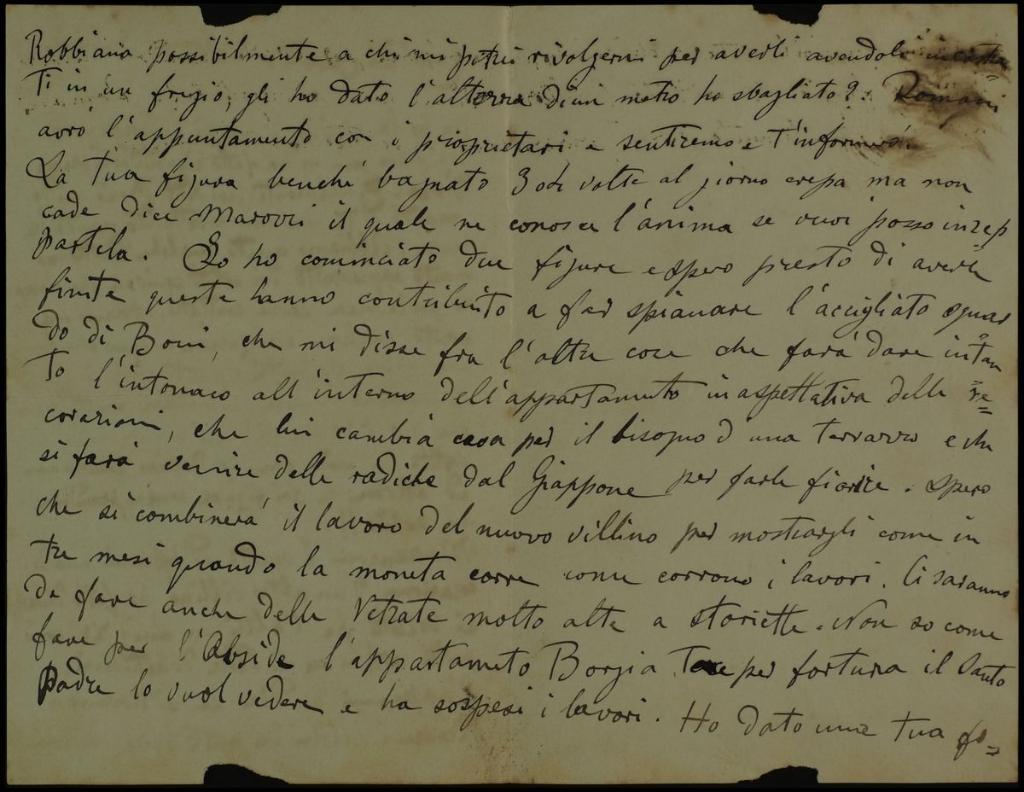 Robbiana possibilmente a chi mi potrei rivolgermi per averli avendoli incastra
Ti in un fregio, gli ho dato l'altezza di un metro ho sbagliato? Domani
avrò l'appuntamento con i proprietari e sentiremo e t'informerò.
La tua figura benché bagnato 3 o 4 volte al giorno crepa ma non
cade dice Marovici il quale ne conosce l'anima se vuoi posso inzep
partela. Io ho cominciato due figure e spero presto di averle
finite queste hanno contribuito a far spianare l'accigliato sguar
do di Boni, che mi disse fra l'altre cose che farà dare intan
to l'intonaco all'interno dell'appartamento in aspettativa delle de=
corazioni, che lui cambia casa per il bisogno d'una terrazza e che
si farà venire delle radiche dal Giappone per farle fiorire. Spero
che si combinerà il lavoro del nuovo villino per mostrargli come in
tre mesi quando la moneta corre come corrono i lavori. Ci saranno
da fare anche delle Vetrate molto alte a storiette. Non so come
fare per l'Abside l'appartamento Borgia per fortuna il Santo
Padre lo vuol vedere e ha sospesi i lavori. Ho dato una tua fo=